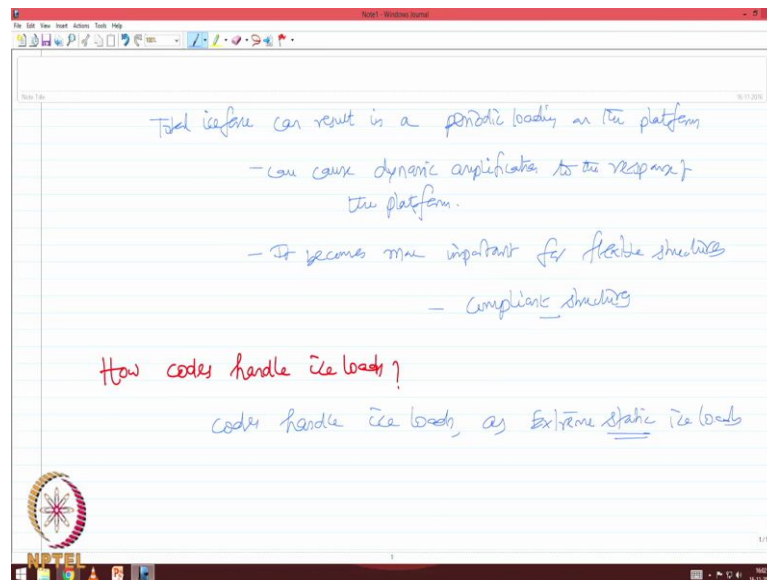 Note1 - Windows Journal
File Edit View Insert Actions Tools Help
Note Title
16-11-2016
Total ice force can result in a periodic loading on the platform
- can cause dynamic amplification to the response of
the platform.
- It becomes more important for flexible structures
- compliant structures
How codes handle ice loads?
codes handle ice loads, as Extreme static ice loads
1/1
1
NPTEL